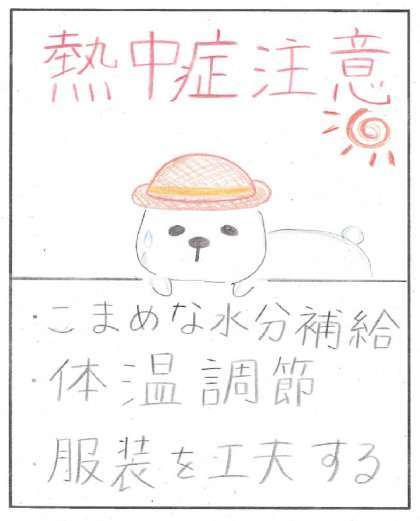 熱中症注意
・こまめな水分補給
・体温調節
・服装を工夫する